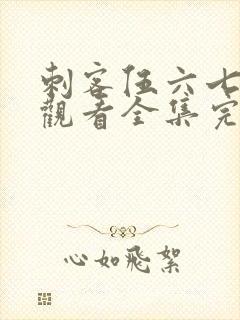 刺客伍六七
觀看全集完
心如飛絮